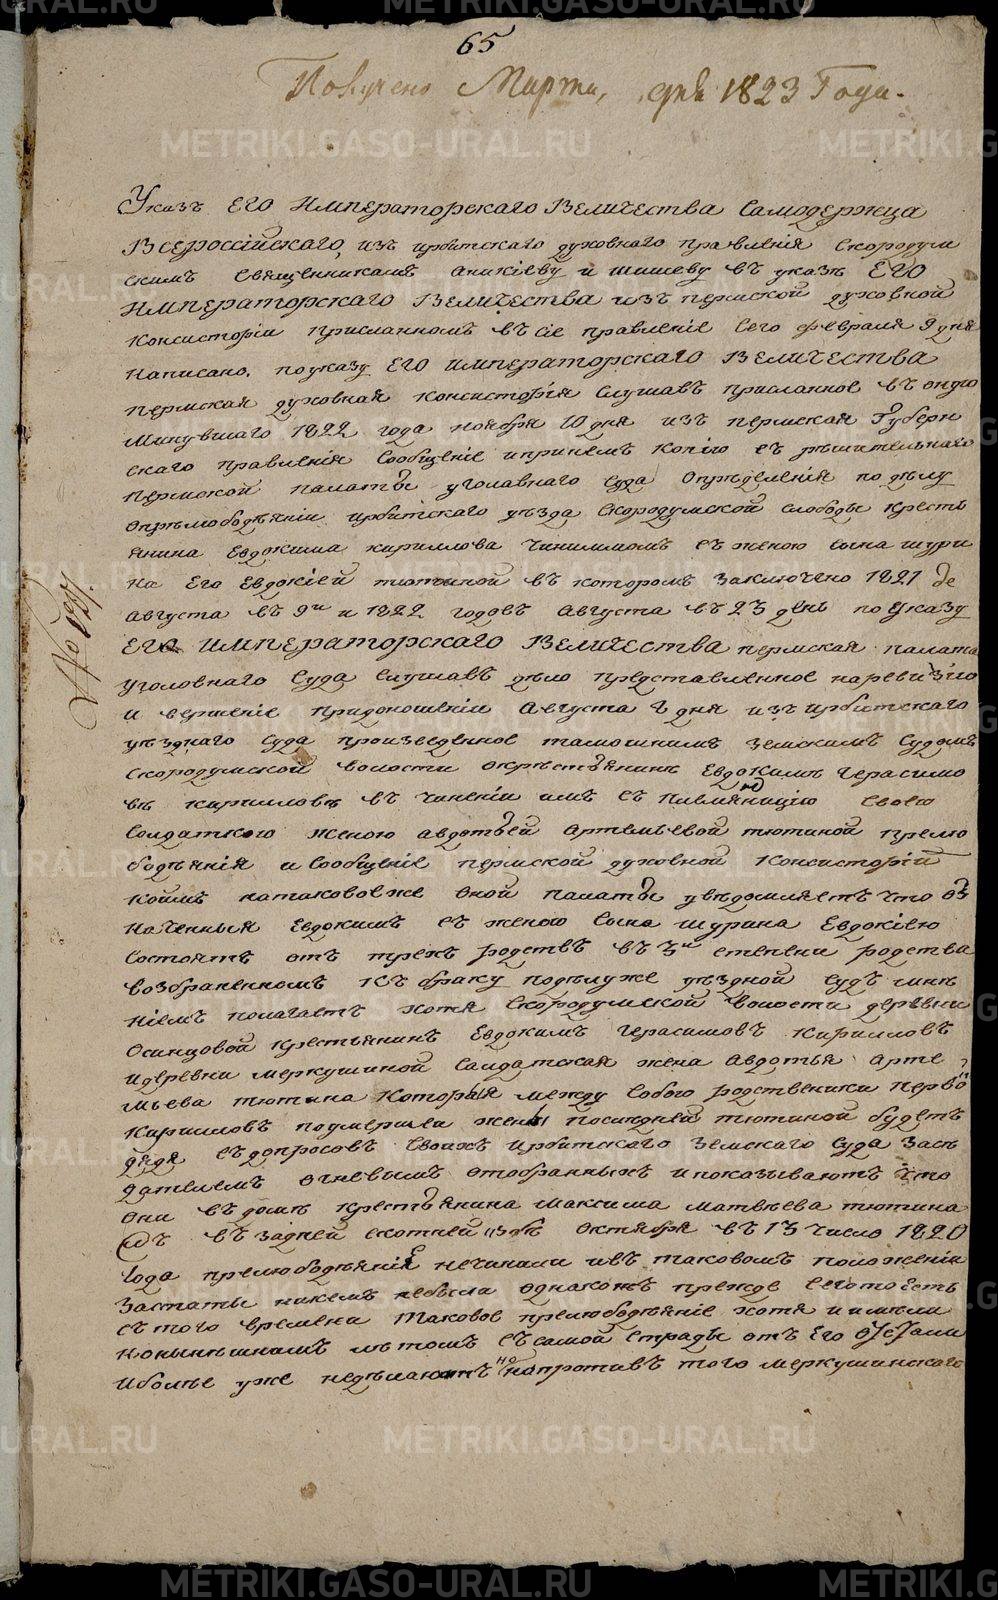 65
Получено Марта, дня 1823 Года.
Указъ ЕГО Императорскаго Величества Самодержца
Всероссiйскаго, изъ ирбитскаго духовнаго правленiя скородум
скимъ Священникамъ аникiеву и шишеву въ указѣ ЕГО
Императорскаго Величества изъ пермской духовной
Консисторiи присланномъ въ сiе правленiе сего февраля 9 дня
написано. по указу ЕГО Императорскаго Величества
пермская духовная консисторiя слушавъ присланное въ оную
минувшаго 1822 года ноября 10 дня изъ пермскаго Губерн
скаго правленiя сообщенiе и при немъ копiю съ рѣшительнаго
пермской палаты уголавнаго суда опредѣленiя по дѣлу
опрѣлюбодѣянiи ирбитскаго уѣзда Скородумской слободы кресть
янина Евдокима кириллова чинимомъ съ женою сына шури
на Его Евдокiей тютиной въ которомъ заключено 1821 де
августа въ 9и и 1822 годовъ августа въ 23 день по Указу
ЕГО Императорскаго Величества пермская палата
уголовнаго Суда слушавъ дѣло представленное на ревизiю
и вершенiе при доношенiи Августа 2 дня изъ ирбитскаго
уѣзднаго Суда произведенное тамошнимъ земскимъ Судомъ
скородумской волости окрѣстьянинѣ Евдокимѣ герасимо
вѣ кирилловѣ въ чиненiи имъ съ племяницею своею
солдаткою женою авдотьей артемьевой тютиной прелю
бодѣянiя и сообщенiе пермской духовной консисторiи
коимъ натаковое же оной палаты увѣдомляетъ что оз
наченныя Евдокимъ съ женою сына шурина Евдокiею
состоятъ отъ трехъ родствъ въ 3и степени родства
возбраненномъ къ браку по дѣлу же уѣздной судъ мнѣ
нiемъ полагаетъ хотя Скородумской волости деревни
Осинцовой крестьянинъ Евдокимъ герасимовъ кирилловъ
и деревни меркушиной салдатская жена авдотья арте
мьева тютина которыя между собою родственики первой
Кирилловъ поумершей женѣ посиднѣй тютиной будетъ
дядя съ допросовъ своихъ ирбитскаго земскаго Суда засѣ
дателемъ огневымъ отобранныхъ и показываютъ что
они въ домѣ крестьянина максима матвѣева тютина
въ задней скотней избѣ октября въ 13 число 1820
года прелюбодѣянiя нечинили и въ таковомъ положенiи
застаты никемъ небыли однакожъ прежде сего то есть
съ того времени таковое прелюбодѣянiе хотя и имѣли
нонынѣшнимъ лѣтомъ съ самой страды отъ Его
и болѣе уже недѣлаютъ но напротивъ того меркушинскаго
No 197.
METRIKI.GASO-URAL.RU